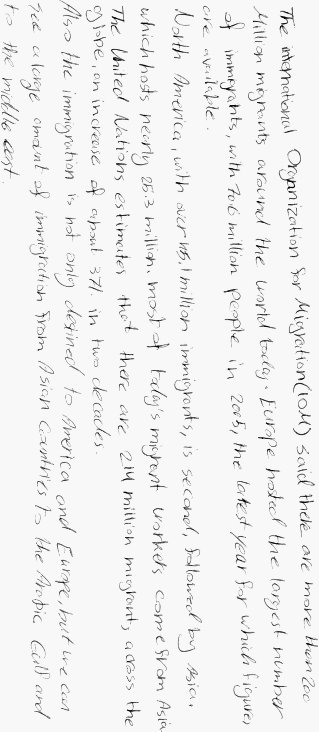 The international Organization for Migration (IOM) said there are more than 200
Million migrants around the world today. Europe hosted the largest number
of immigrants, with 70.6 million people in 2005, the latest year for which figures
are available.
North America, with over 45.1 million immigrants, is second, followed by Asia,
which hosts nearly 25.3 million. most of today's migrant workers come from Asia
The United Nations estimates that there are 214 million migrants across the
globe, an increase of about 37% in two decades.
Also the immigration is not only destined to America and Europe, but we can
see a large amount of immigration from Asian Countries to the Arabic Gulf and
to the middle east.